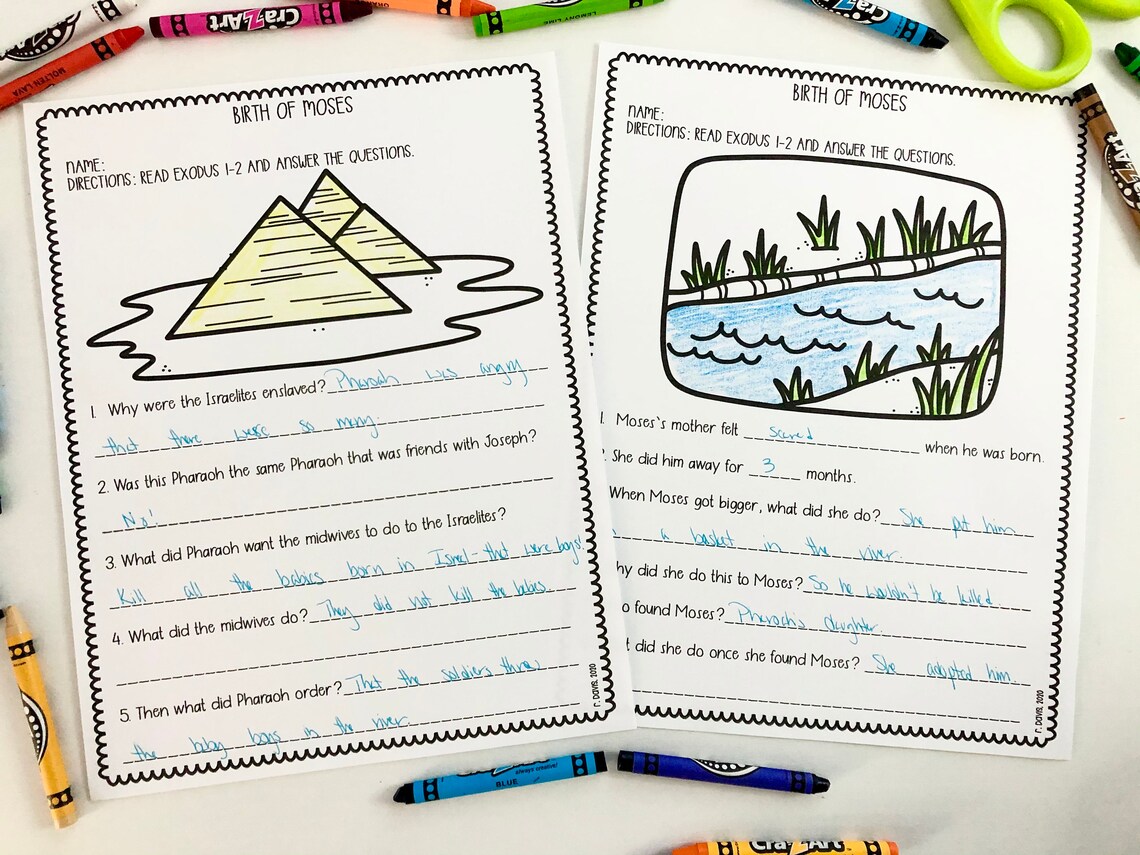 Cra-Z-Art
LEMONY LIME
Cra-Z-Art
MOLTEN LAVA
BIRTH OF MOSES
NAME:
DIRECTIONS: READ EXODUS 1-2 AND ANSWER THE QUESTIONS.
1. Why were the Israelites enslaved? Pharaoh was angry
that there were so many.
2. Was this Pharaoh the same Pharaoh that was friends with Joseph?
No!
3. What did Pharaoh want the midwives to do to the Israelites?
Kill all the babies born in Israel- that were boys!
4. What did the midwives do? They did not kill the babies.
5. Then what did Pharaoh order? That the soldiers threw
the baby boys in the river.
r. Davis, 2020
BIRTH OF MOSES
NAME:
DIRECTIONS: READ EXODUS 1-2 AND ANSWER THE QUESTIONS.
1. Moses`s mother felt scared when he was born.
2. She did him away for 3 months.
When Moses got bigger, what did she do? She put him
a basket in the river.
hy did she do this to Moses? So he wouldn't be killed.
o found Moses? Pharoah's daughter.
t did she do once she found Moses? She adopted him.
r. Davis, 2020
always creative!
BLUE
Cra-Z-Art